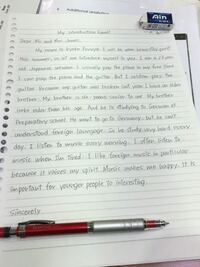 Ain
My introduction Event
Dear Mr. and Mrs. Jones,
My name is Kyoko
This summer. So let me introduce myself to you. I am a 23 year
old Japanese woman. I usually play the piano in my free time.
I can play the piano and the guitar. But I seldom play the
guitar because my guitar was broken last year. I have an older
brother. My brother is six years older than me. My brother
looks older than his age. And he is studying German at
Preparatory school. He want to go to Germany, but he can't
understood foreign language. So he study very hard every
day. I listen to music every morning. I often listen to
music when I'm tired. I like foreign music in particular
because it raises my spirit. Music makes me happy. It is
important for younger people to interesting.
Sincerely